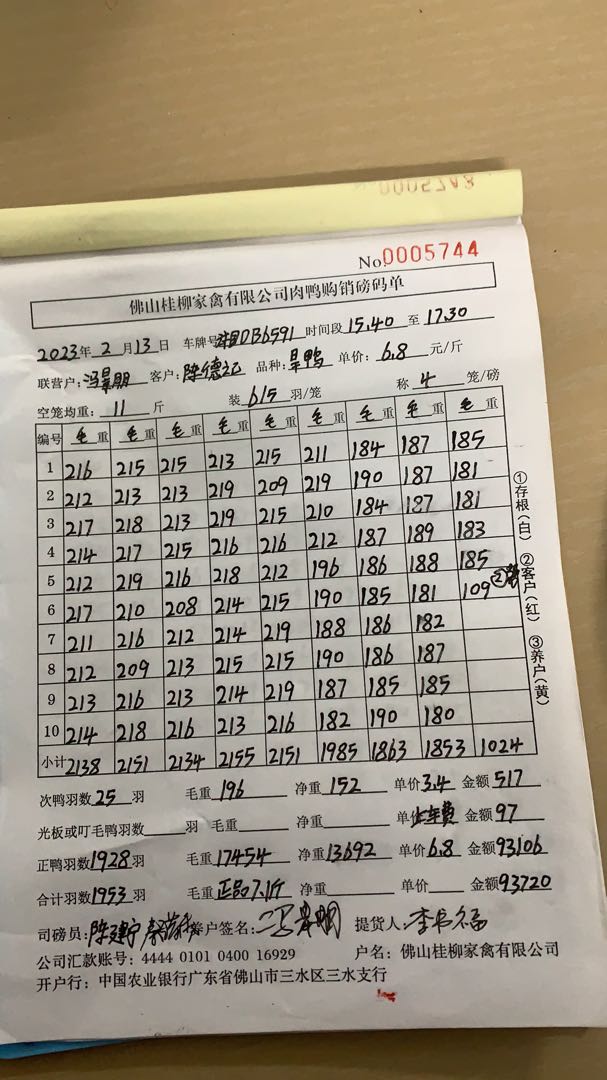 0005743
No.0005744
佛山桂柳家禽有限公司肉鸭购销磅码单
2023年 2 月 13 日 车牌号 湘DB6591 时间段 15.40 至 17.30
联营户: 冯景朋 客户: 陈德记 品种: 旱鸭 单价: 6.8 元/斤
空笼均重: 11 斤 装 6/5 羽/笼 称 4 笼/磅
编号 毛重 毛重 毛重 毛重 毛重 毛重 毛重 毛重 毛重
1 216 215 215 213 215 211 184 187 185
2 212 213 213 219 209 219 190 187 181
3 217 218 213 219 215 210 184 187 181
4 214 217 215 216 216 212 187 189 183
5 212 219 216 218 212 196 186 188 185
6 217 210 208 214 215 190 185 181 109
7 211 216 212 214 219 188 186 182
8 212 209 213 215 215 190 186 187
9 213 216 213 214 219 187 185 185
10 214 218 216 213 216 182 190 180
小计 2138 2151 2134 2155 2151 1985 1863 1853 1024
①存根(白) ②客户(红) ③养户(黄)
次鸭羽数 25 羽 毛重 196 净重 152 单价 3.4 金额 517
光板或叮毛鸭羽数 羽 毛重 净重 单价 金额 97
正鸭羽数 1928 羽 毛重 17454 净重 13692 单价 6.8 金额 93106
合计羽数 1953 羽 毛重 正品7.1斤 净重 单价 金额 93720
司磅员: 陈建宁 养户签名: 提货人:
公司汇款账号: 4444 0101 0400 16929 户名: 佛山桂柳家禽有限公司
开户行: 中国农业银行广东省佛山市三水区三水支行